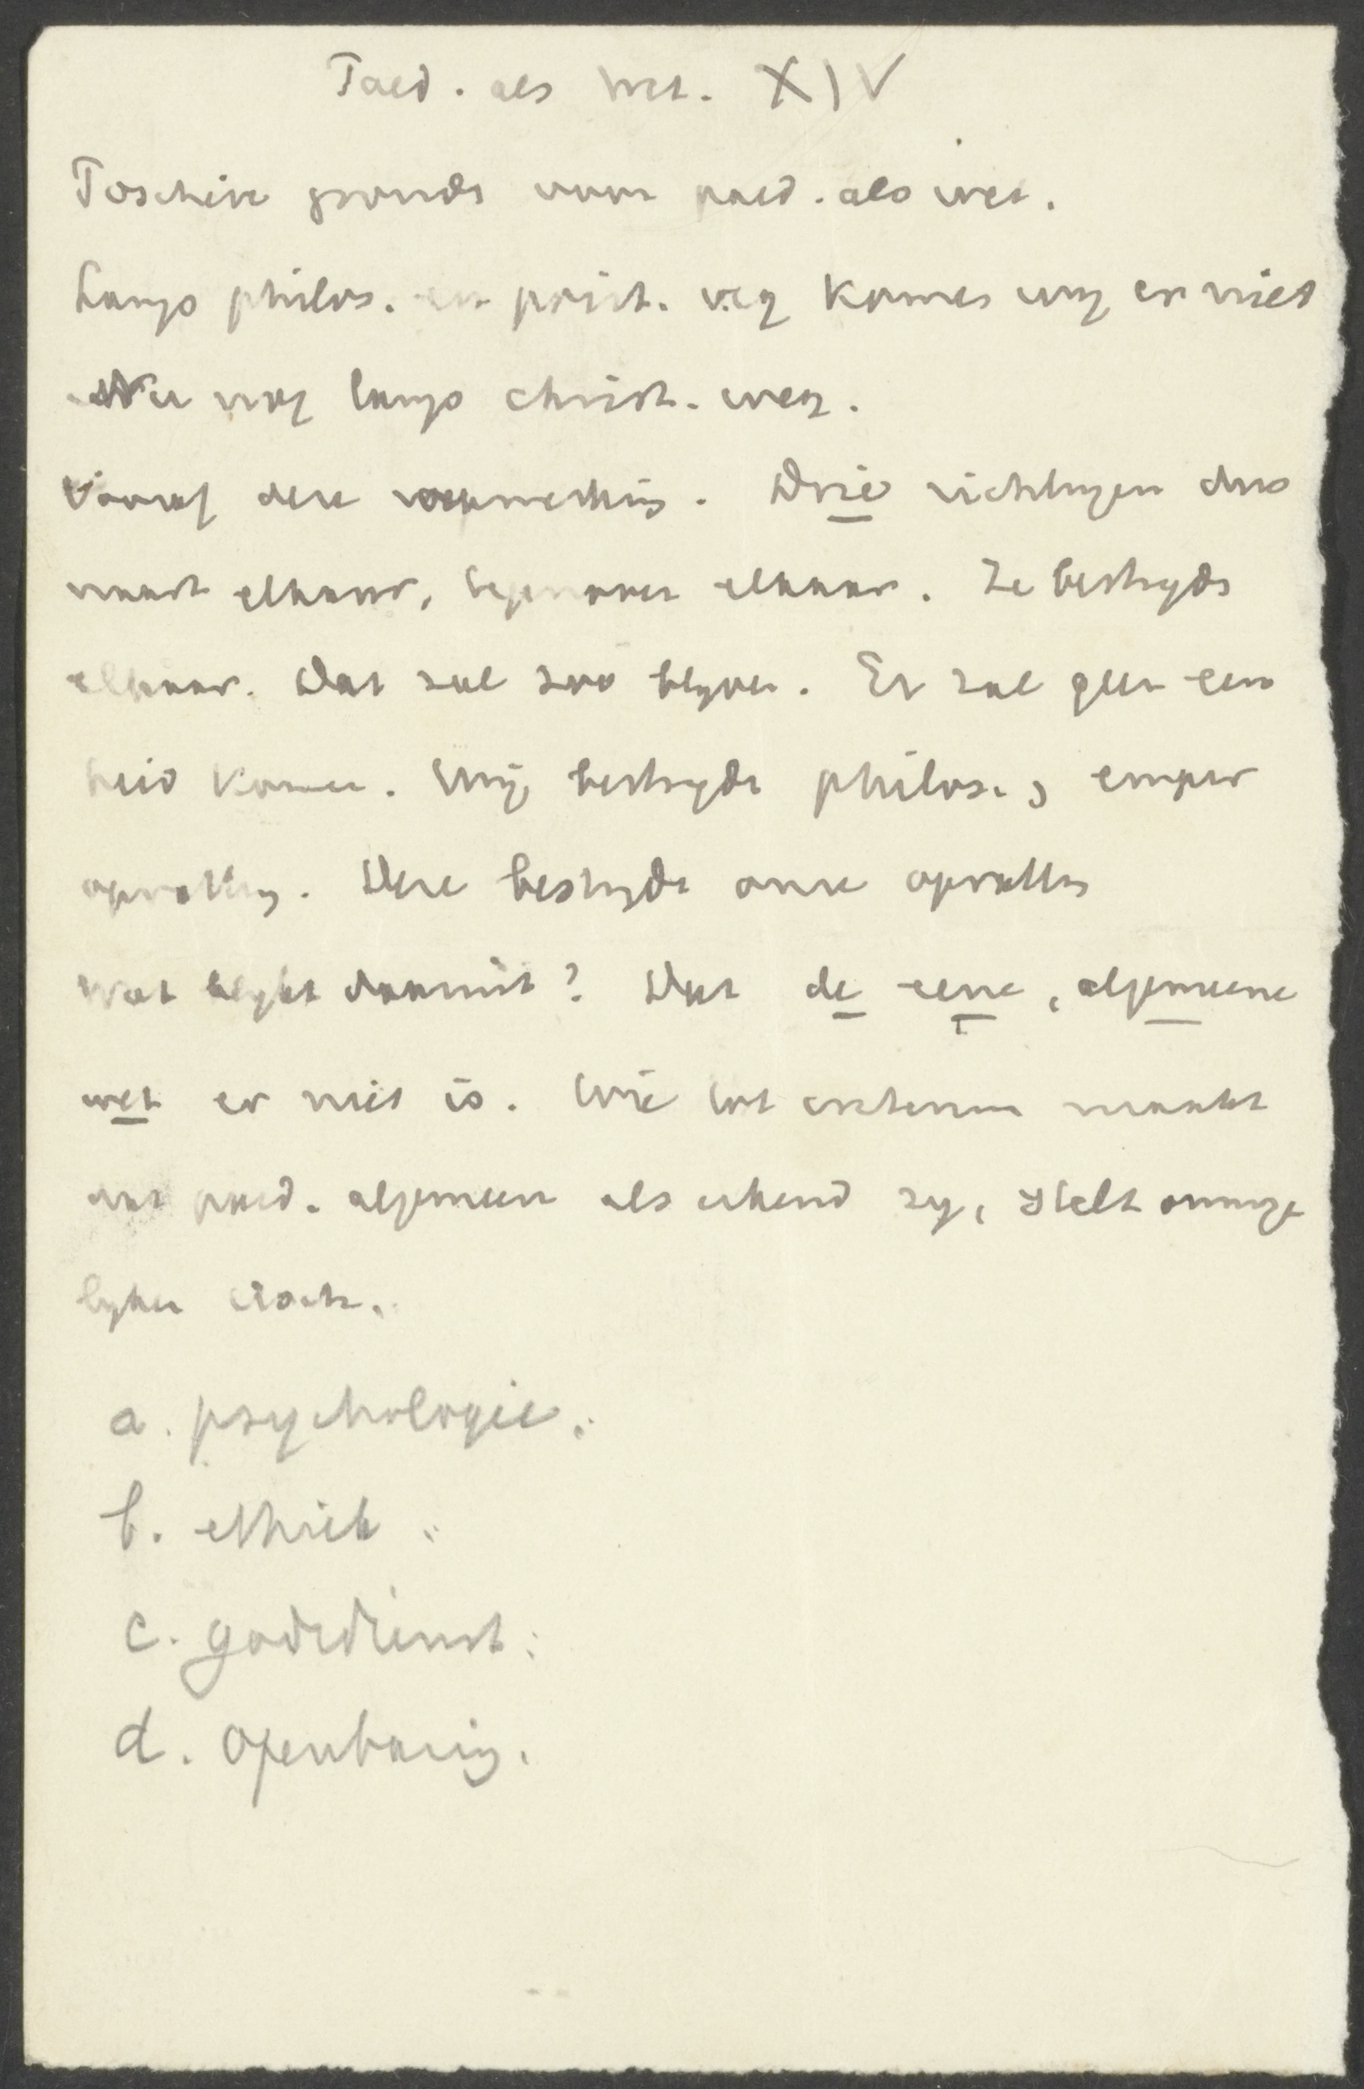 Paed. als wet. XIV
Positieve gronds voor paed. als wet.
Langs philos. en posit. weg komen wij er niet
Nu nog langs christ. weg.
Vooraf deze opmerking. Drie richtingen dus
naast elkaar, tegenover elkaar. Ze bestryds
elkaar. Dat zal zoo blyven. Er zal geen een
heid komen. Wij bestryde philos., emper
opvatting. Deze bestryde onze opvatting
Wat blykt daaruit? Dat de eene, algemeene
wet er niet is. Wie tot criterium maakt
dat paed. algemeen als erkend zy, stelt onmoge
lyken eisch.
a. psychologie.
b. ethiek
c. godsdienst.
d. Openbaring.